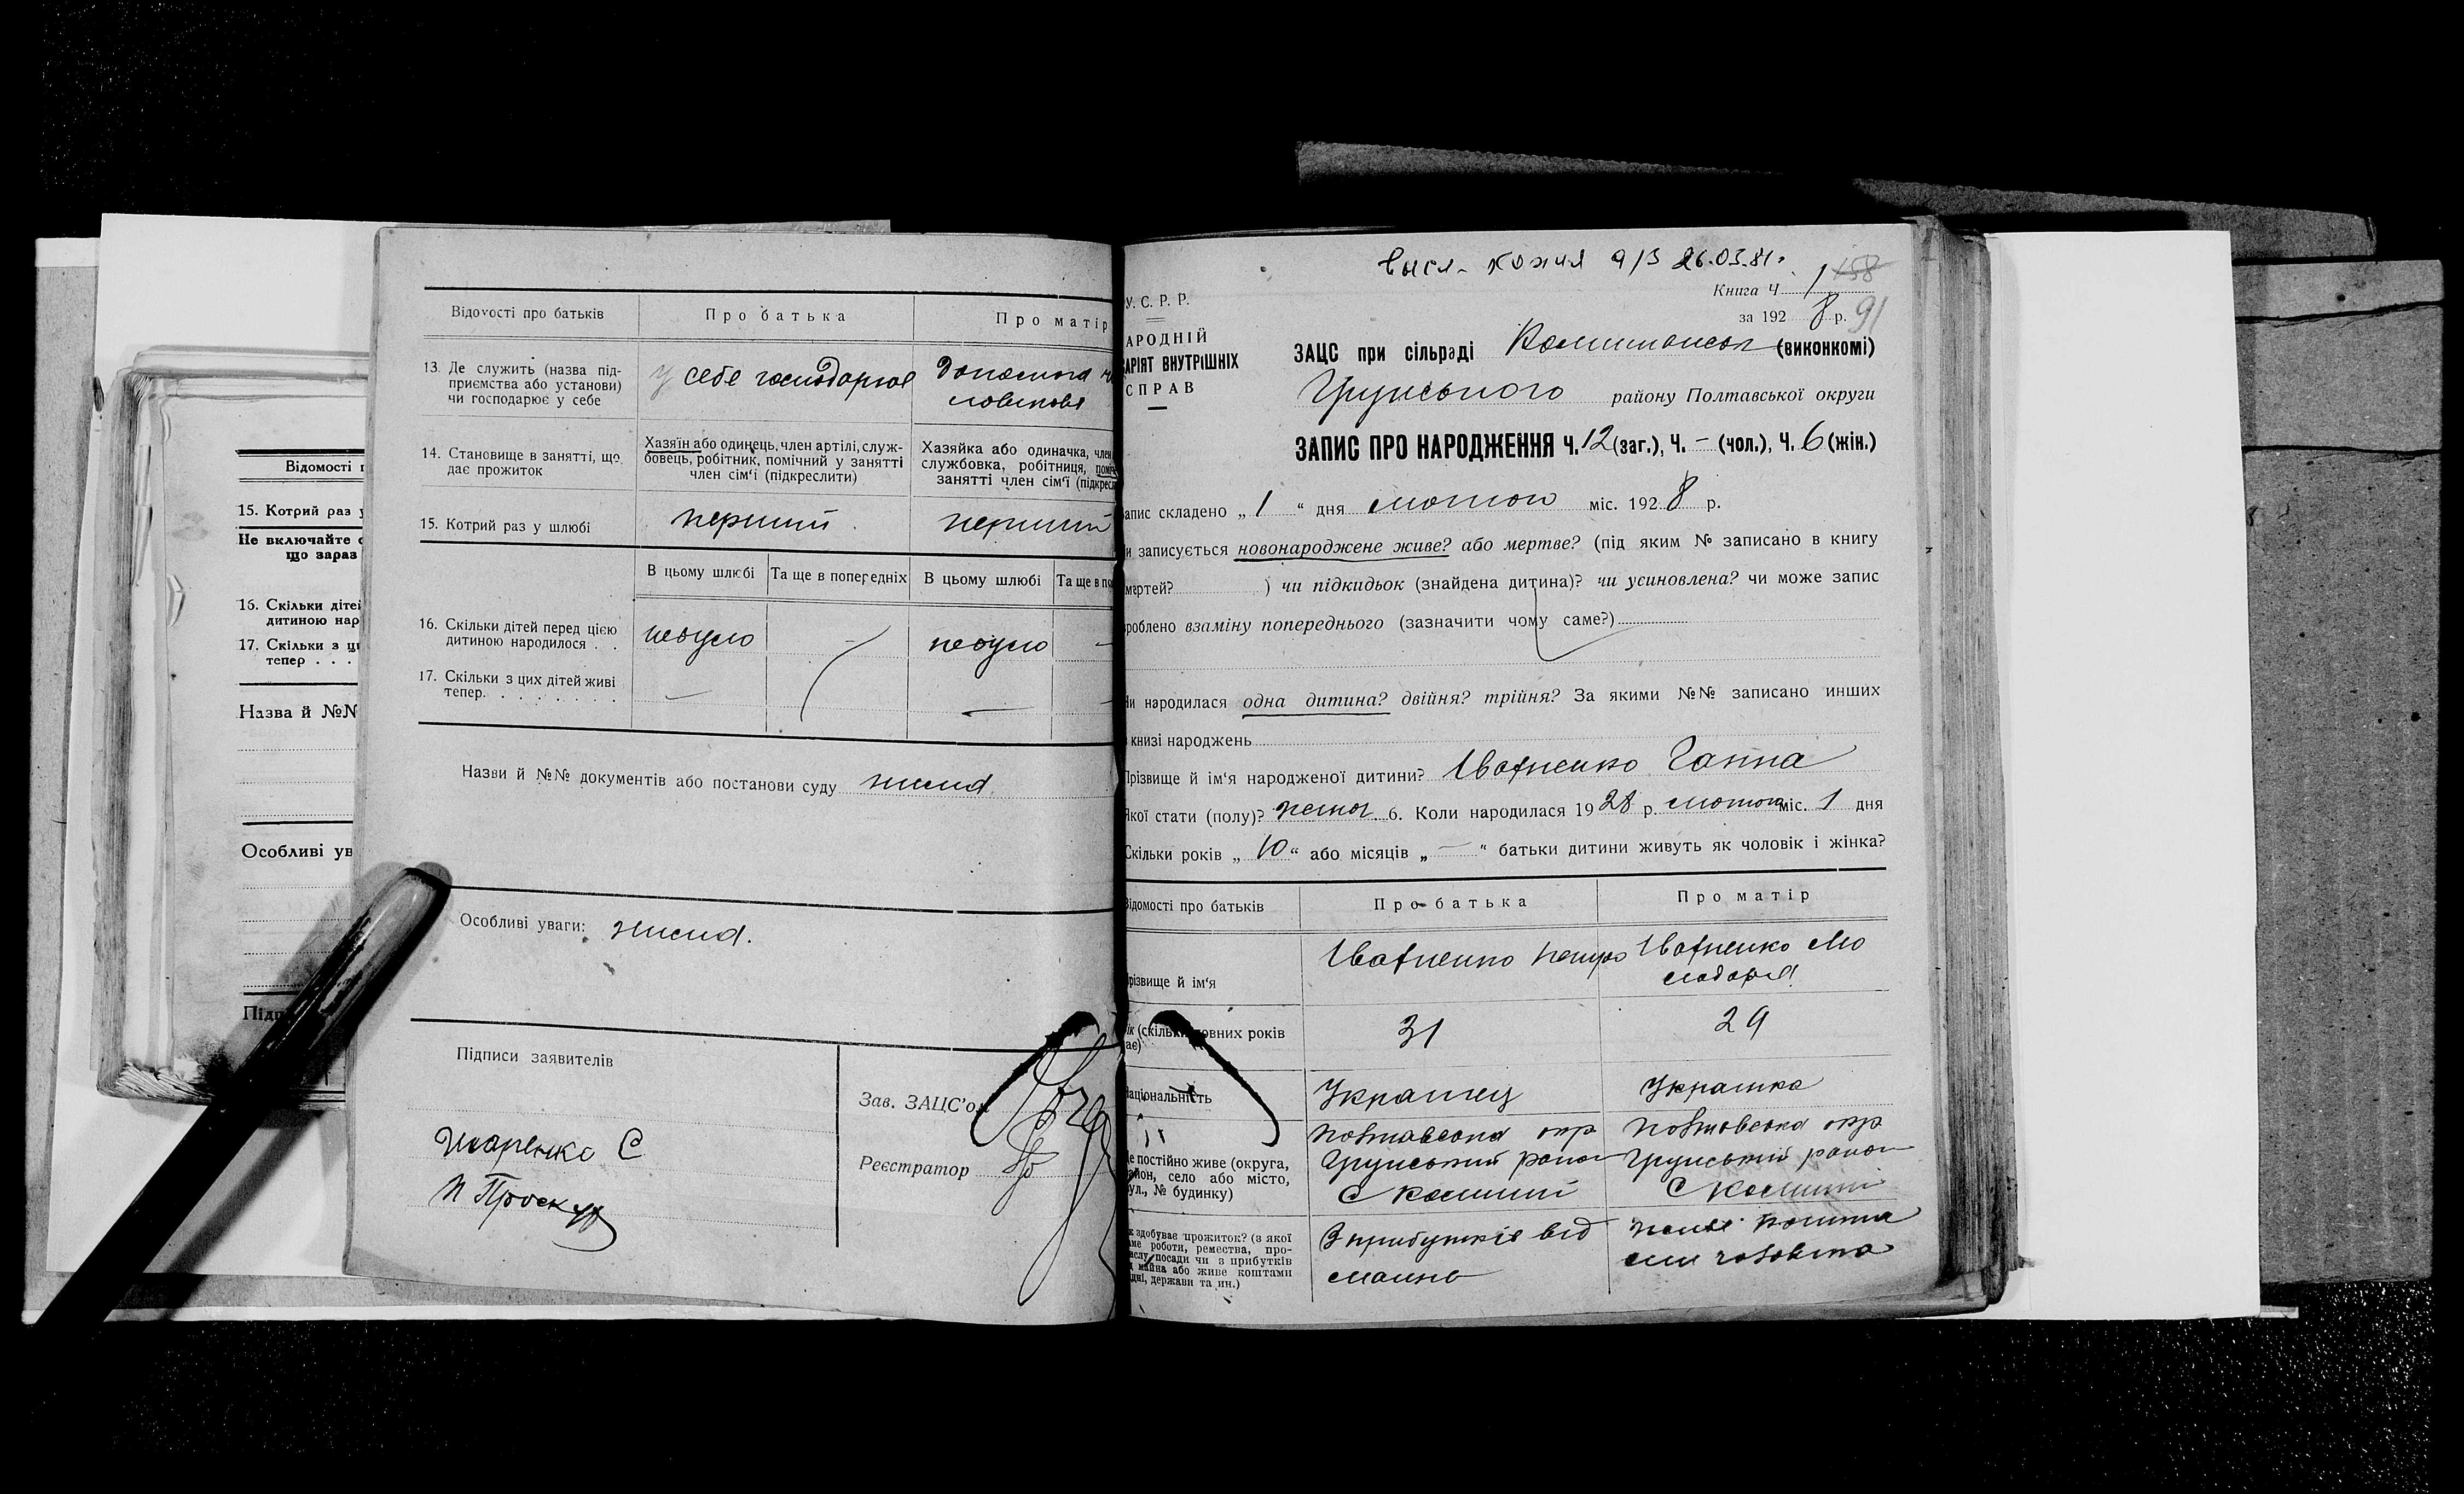 Відомості п
15. Котрий раз у
Не включайте
що зараз
16. Скільки дітей
дитиною нар
17. Скільки з ци
тепер . . .
Назва й №№
Особливі ув
Підп
Відомості про батьків
Про батька
Про матір
13. Де служить (назва під-
приємства або установи)
чи господарює у себе
у себе господарює
Допомога
чоловікові
14. Становище в занятті, що
дає прожиток
Хазяїн або одинець, член артілі, служ-
бовець, робітник, помічний у занятті
член сім'ї (підкреслити)
Хазяйка або одиначка, член
службовка, робітниця, поміч
занятті член сім'ї (підкресл
15. Котрий раз у шлюбі
перший
перший
В цьому шлюбі
Та ще в попередніх
В цьому шлюбі
Та ще в по
16. Скільки дітей перед цією
дитиною народилося . .
небуло
-
небуло
-
17. Скільки з цих дітей живі
тепер. . . . . . . .
-
-
Назви й №№ документів або постанови суду нема
Особливі уваги: нема.
Підписи заявителів
Зав. ЗАЦС'ом
Реєстратор
П Проскур
Высл. копия 9/3 26.03.81г.
Книга Ч. 1 158
за 1928 р. 91
У.С.Р.Р.
АРОДНІЙ
АРІЯТ ВНУТРІШНІХ
СПРАВ
ЗАЦС при сільраді (виконкомі)
Грунського району Полтавської округи
ЗАПИС ПРО НАРОДЖЕННЯ Ч. 12 (заг.), Ч. - (чол.), Ч. 6 (жін.)
апис складено „ 1 “ дня лютого міс. 1928 р.
и записується новонароджене живе? або мертве? (під яким № записано в книгу
мертей? ) чи підкидьок (знайдена дитина)? чи усиновлена? чи може запис
роблено взаміну попереднього (зазначити чому саме?)
Чи народилася одна дитина? двійня? трійня? За якими №№ записано инших
книзі народжень
Прізвище й ім'я народженої дитини? Ганна
Якої стати (полу)? жіноч. 6. Коли народилася 1928 р. лютого міс. 1 дня
Скільки років „ 10 “ або місяців „ - “ батьки дитини живуть як чоловік і жінка?
Відомості про батьків
Про батька
Про матір
Прізвище й ім'я
Петро
31
29
Національність
Українец
Українка
е постійно живе (округа,
айон, село або місто,
ул., № будинку)
Полтавська окр
Грунський район
Полтавська окр
Грунський район
к здобуває прожиток? (з якої
аме роботи, ремества, про-
ислу посади чи з прибутків
д майна або живе коштами
дні, держави та ин.)
З прибутків від
майна
живе кошта
ми чоловіка